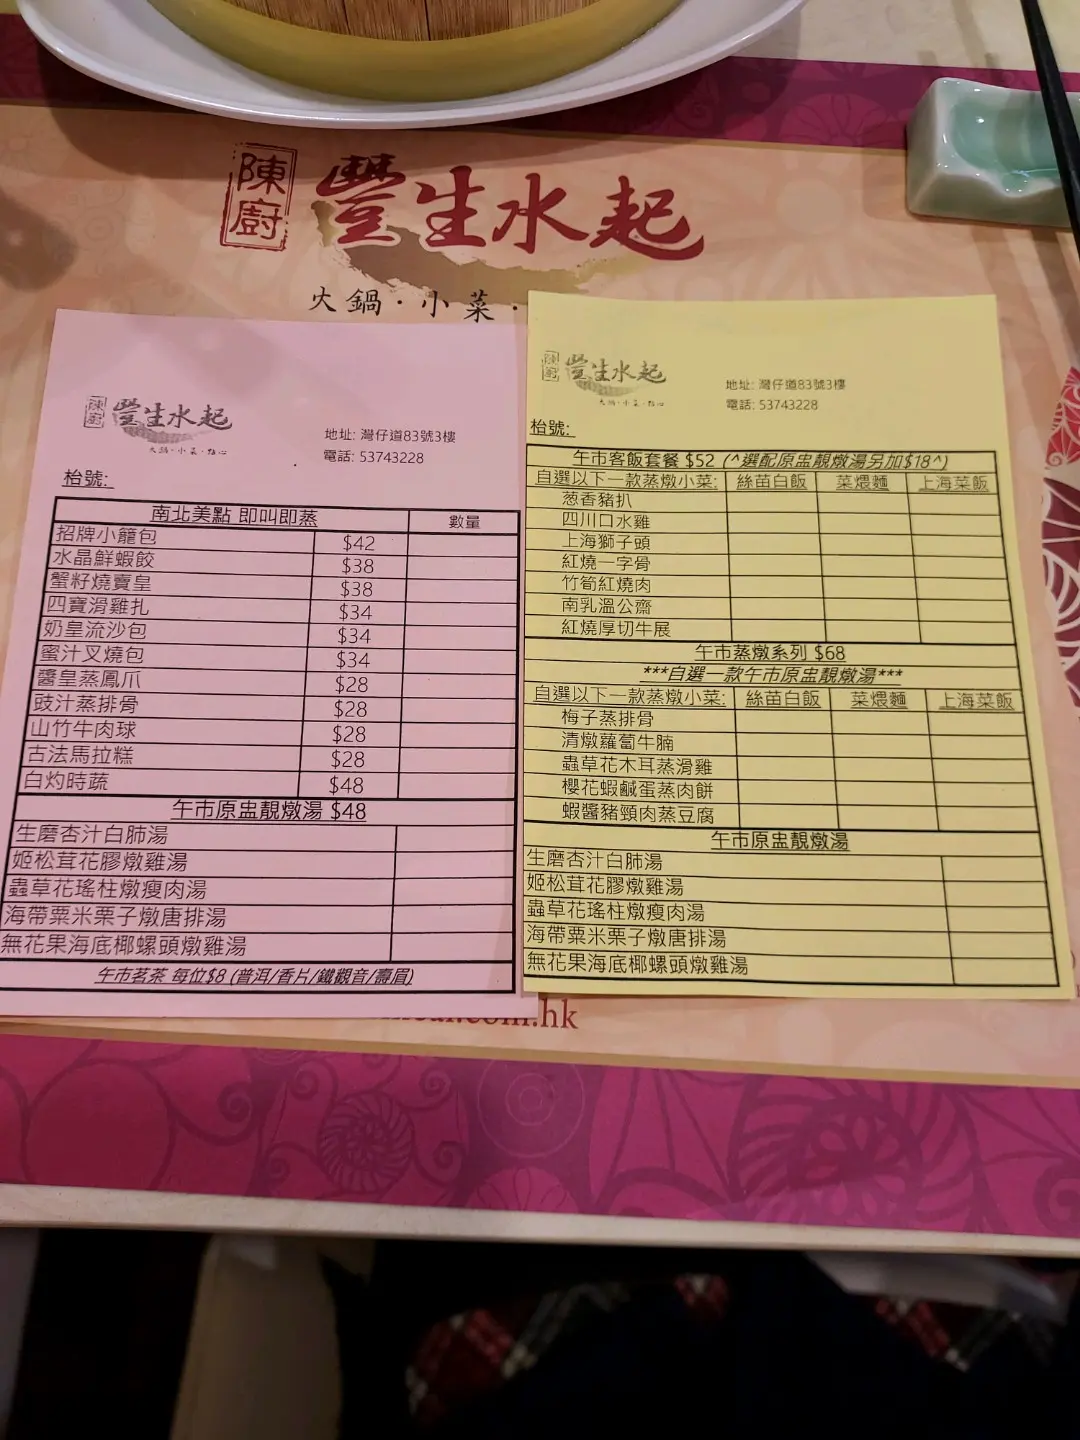 陳廚 豐生水起
火鍋·小菜·
陳廚 豐生水起
火鍋·小菜·點心
地址: 灣仔道83號3樓
電話: 53743228
枱號:
南北美點 即叫即蒸 數量
招牌小籠包 $42
水晶鮮蝦餃 $38
蟹籽燒賣皇 $38
四寶滑雞扎 $34
奶皇流沙包 $34
蜜汁叉燒包 $34
醬皇蒸鳳爪 $28
豉汁蒸排骨 $28
山竹牛肉球 $28
古法馬拉糕 $28
白灼時蔬 $48
午市原盅靚燉湯 $48
生磨杏汁白肺湯
姬松茸花膠燉雞湯
蟲草花瑤柱燉瘦肉湯
海帶粟米栗子燉唐排湯
無花果海底椰螺頭燉雞湯
午市茗茶 每位$8 (普洱/香片/鐵觀音/壽眉)
陳廚 豐生水起
火鍋·小菜·點心
地址: 灣仔道83號3樓
電話: 53743228
枱號:
午市客飯套餐 $52 (^選配原盅靚燉湯另加$18^)
自選以下一款蒸燉小菜: 絲苗白飯 菜煨麵 上海菜飯
葱香豬扒
四川口水雞
上海獅子頭
紅燒一字骨
竹筍紅燒肉
南乳溫公齋
紅燒厚切牛展
午市蒸燉系列 $68
***自選一款午市原盅靚燉湯***
自選以下一款蒸燉小菜: 絲苗白飯 菜煨麵 上海菜飯
梅子蒸排骨
清燉蘿蔔牛腩
蟲草花木耳蒸滑雞
櫻花蝦鹹蛋蒸肉餅
蝦醬豬頸肉蒸豆腐
午市原盅靚燉湯
生磨杏汁白肺湯
姬松茸花膠燉雞湯
蟲草花瑤柱燉瘦肉湯
海帶粟米栗子燉唐排湯
無花果海底椰螺頭燉雞湯
.com.hk